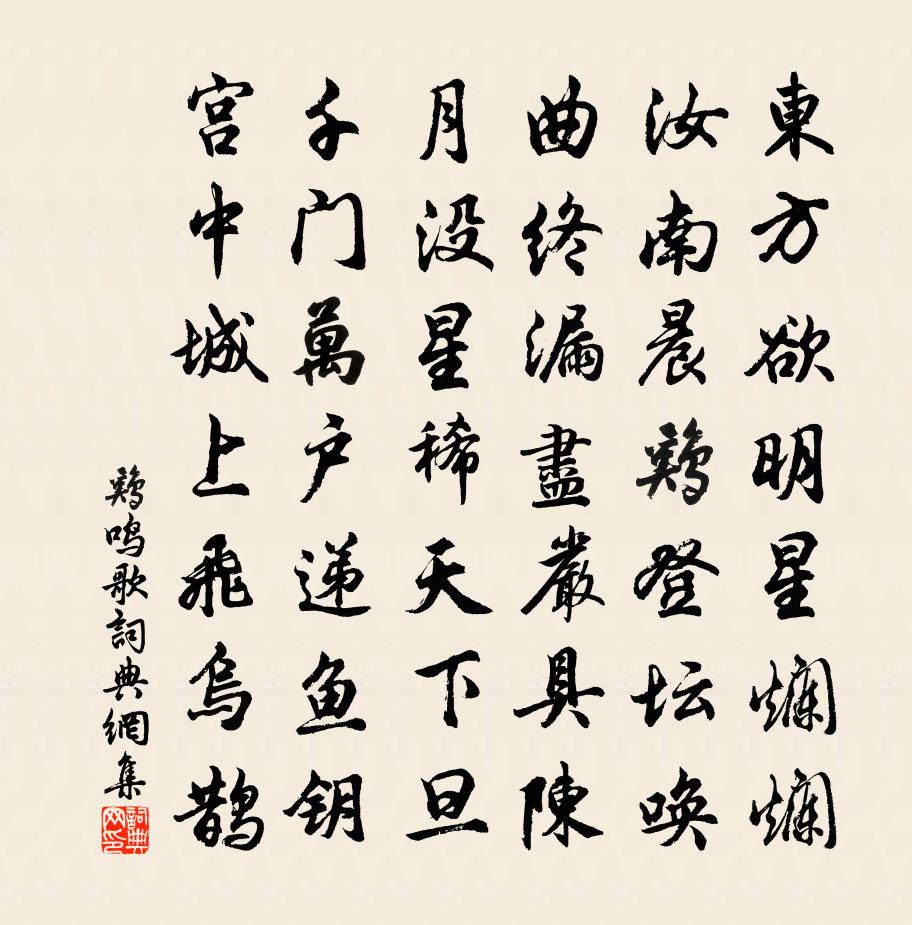 東方欲明星爛爛
汝南晨鷄登坛唤
曲终漏盡嚴具陳
月没星稀天下旦
千门萬户递鱼钥
宫中城上飛烏鹊
鷄鸣歌詞典網集
詞典网印